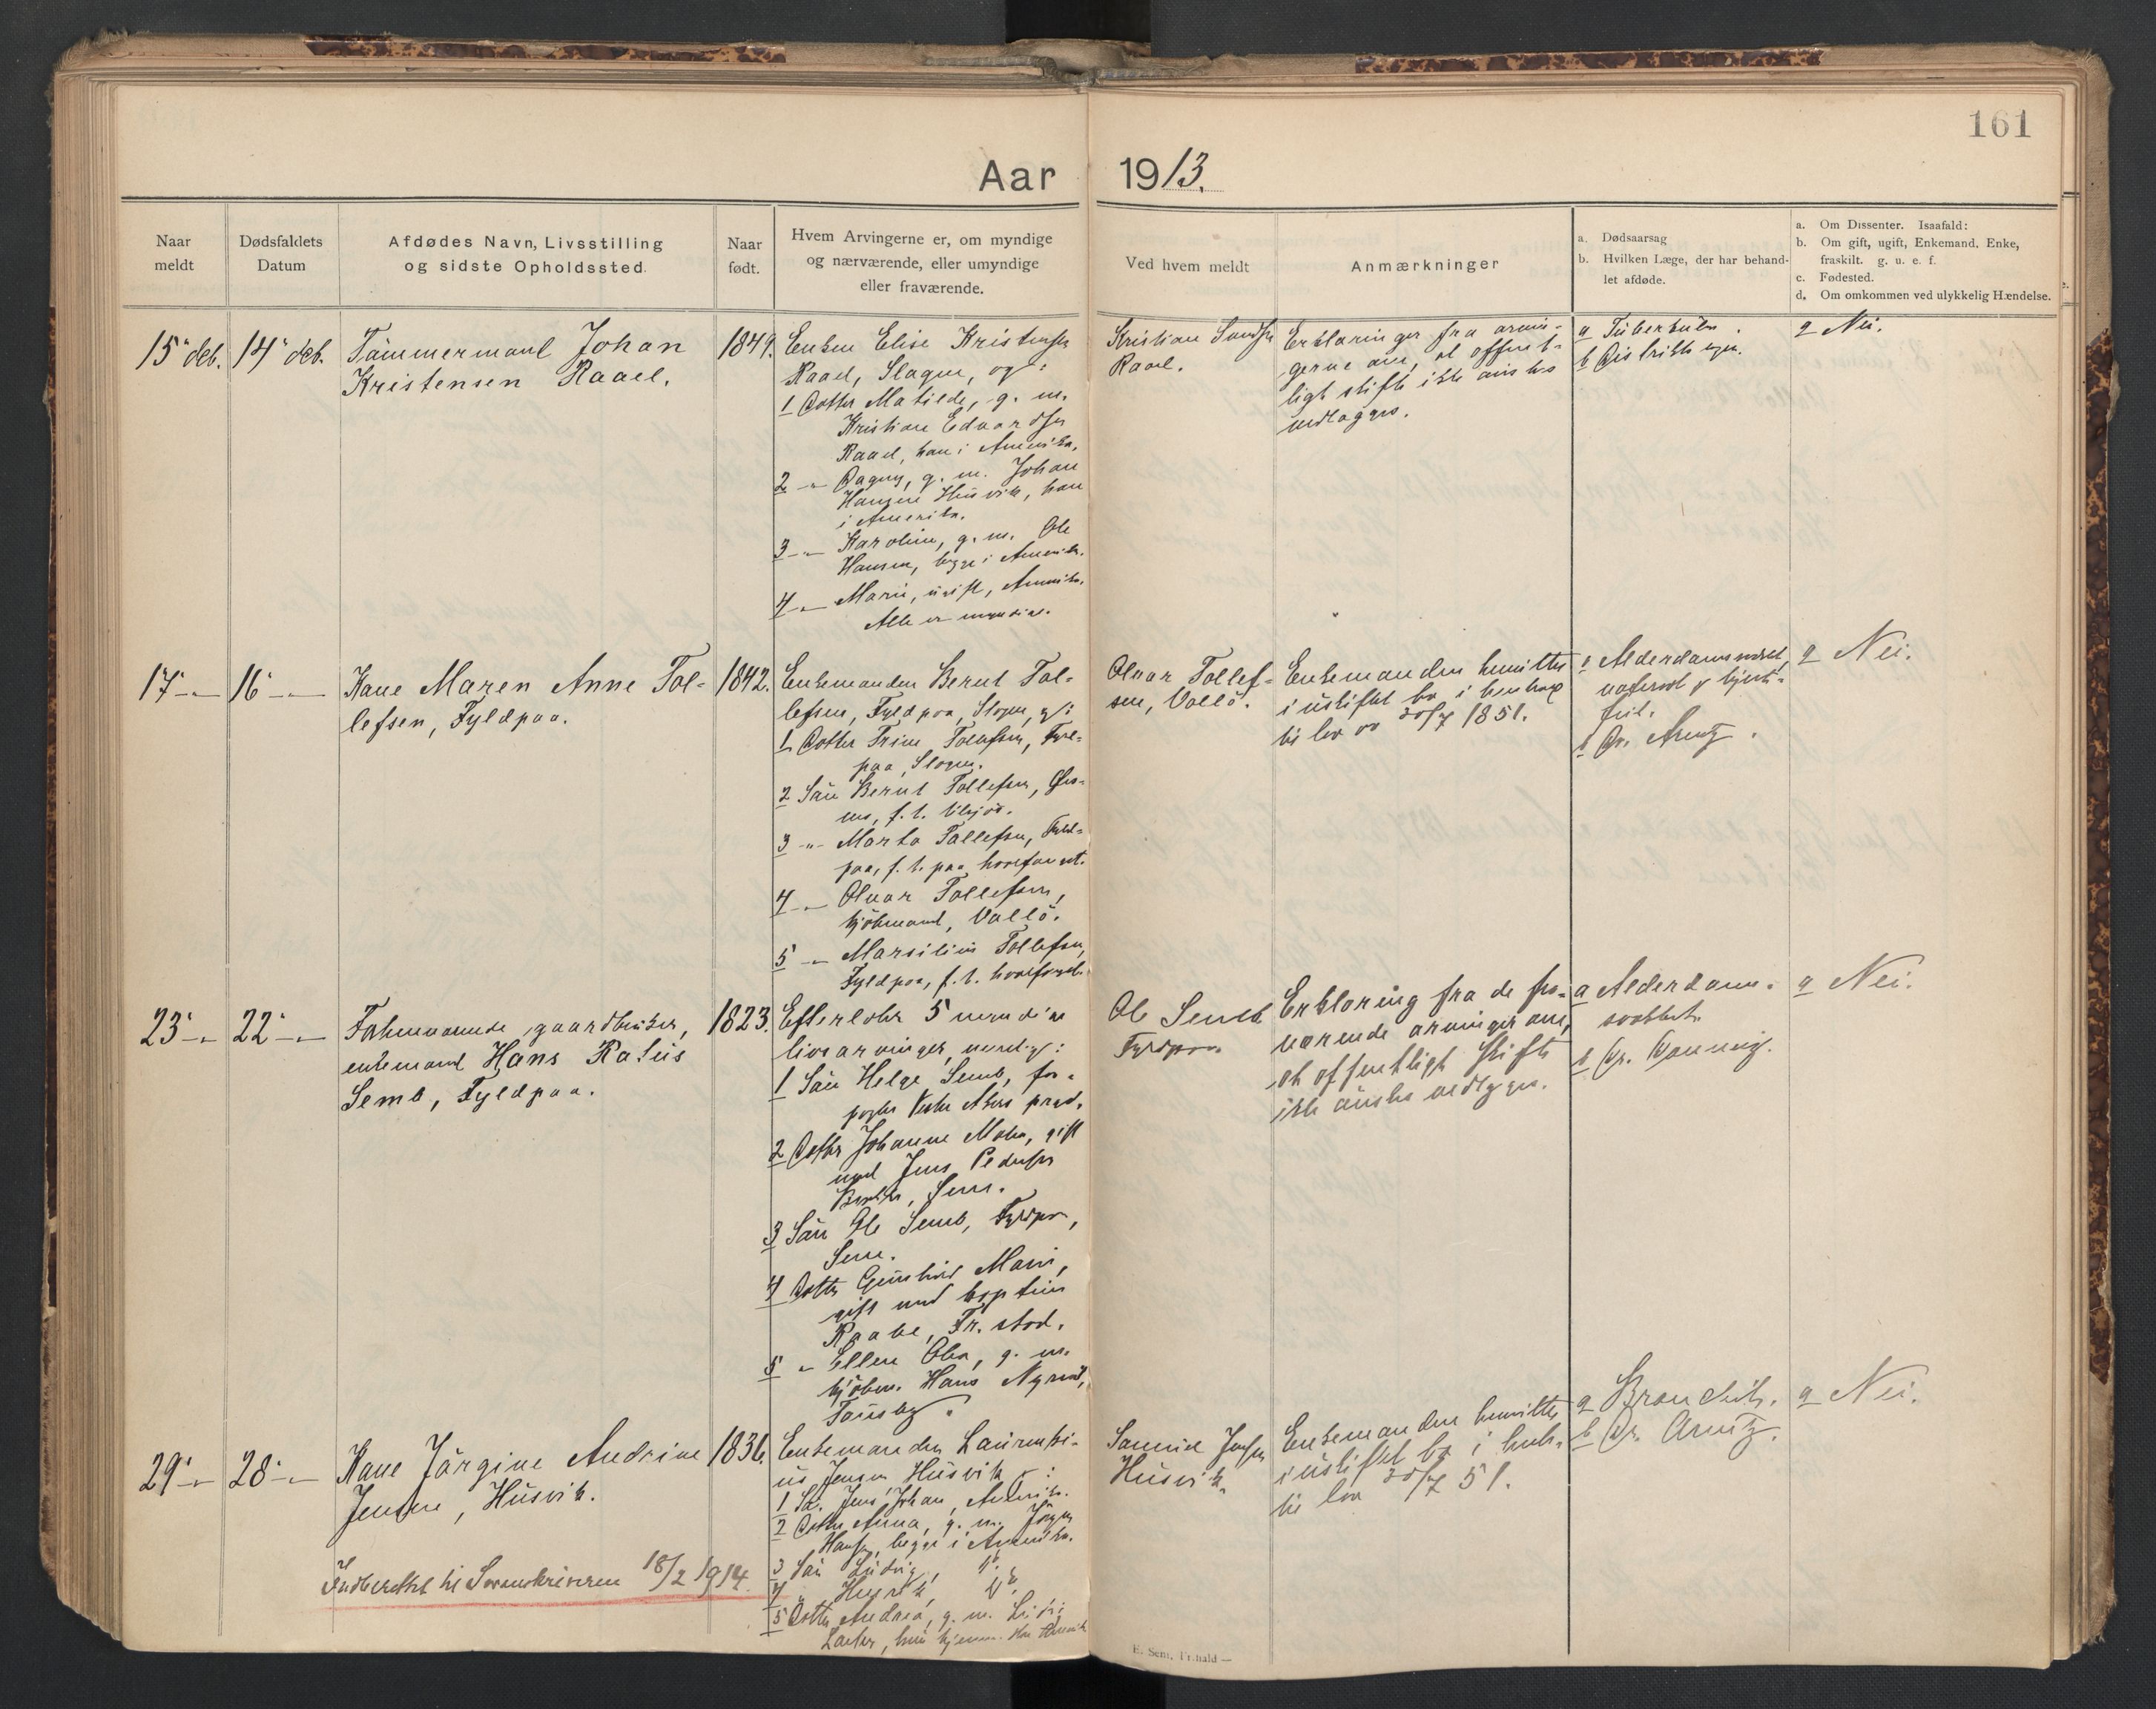 161
Aar 1913.
Naar meldt
Dødsfaldets Datum
Afdødes Navn, Livsstilling og sidste Opholdssted.
Naar født.
Hvem Arvingerne er, om myndige og nærværende, eller umyndige eller fraværende.
Ved hvem meldt
Anmærkninger
a. Dødsaarsag
b. Hvilken Læge, der har behand-
let afdøde.
a. Om Dissenter. Isaafald:
b. Om gift, ugift, Enkemand, Enke,
fraskilt. g. u. e. f.
c. Fødested.
d. Om omkommen ved ulykkelig Hændelse.
15' deb. 14' deb.
Tömmermand Johan
Kristensen Raael.
1849.
Enken Elise Kristensen
Raael, Slagen, og:
1 Datter Matilde, g. m.
Kristian Edvardsen
Raael, han i Amerika.
2 -"- Dagny, g. m. Johan
Hansen Husvik, han
i Amerika.
3 -"- Karoline, g. m. Ole
Hansen, begge i Amerika.
4 -"- Marie, ugift, Amerika.
Alle er myndige.
Kristian
Raael.
Erklæringer fra arvin-
gerne om, at offent-
ligt skifte ikke önskes
vedlægges.
a Tuberkulose.
b Distriktslægen.
a Nei.
17' -"- 16' -"-
Kone Maren Anne Tol-
lefsen, Fyldpaa.
1842.
Enkemanden Bernt Tol-
lefsen, Fyldpaa, Slagen, og:
1 Datter Trine Tollefsen, Fyld-
paa, Slagen.
2 Sön Bernt Tollefsen,
f. t. tilsjös.
3 -"- Marta Tollefsen, Fyld-
paa, f. t. paa hvalfangst.
4 -"- Olvar Tollefsen,
kjöbmand, Vallö.
5 -"- Marsilius Tollefsen,
Fyldpaa, f. t. hvalfangst.
Olvar Tollef-
sen, Vallö.
Enkemanden hensitter
i uskiftet bo i henhold
til lov av 30/7 1851.
a Alderdomssvakhet,
vatersot & hjerte-
feil.
b Dr. Arentz.
a Nei.
23' -"- 22' -"-
Forhenværende gaardbruker,
enkemand Hans Ratus
Semb, Fyldpaa.
1823.
Efterlater 5 myndige
livsarvinger, nemlig:
1 Sön Helge Semb, for-
pagter Vestre Akers prgd.
2 Datter Johanne Maten, gift
med Jens Pedersen
Sem.
3 Sön Ole Semb, Fyldpaa,
Sem.
4 Datter Gunhild Marie,
gift med kaptein
Raabe, Fr.stad.
5 -"- Ellen Olea, g. m.
kjöbm. Hans
Tönsberg.
Ole Semb
Fyldpaa.
Erklæring fra de for-
nærmende arvinger om,
at offentligt skifte
ikke önskes vedlægges.
a Alderdoms-
svakhet.
b Dr.
a Nei.
29' -"- 28' -"-
Kone Jörgine Andrine
Jensen, Husvik.
1836.
Enkemanden Laurenti-
us Jensen, Husvik og:
1 Sön Jens Johan, Amerika.
2 Datter Anna, g. m. Jörgen
Hansen, begge i Amerika.
3 Sön Ludvig,
4 -"- Henrik,
5 Datter Andrea, g. m.
Samuel Jensen
Husvik.
Enkemanden hensitter
i uskiftet bo i henh.
til lov 30/7 51.
a Bronchit.
b Dr. Arentz.
a Nei.
Indberettet til Sorenskriveren 18/2 1914.
E. Sem, Fr.hald —